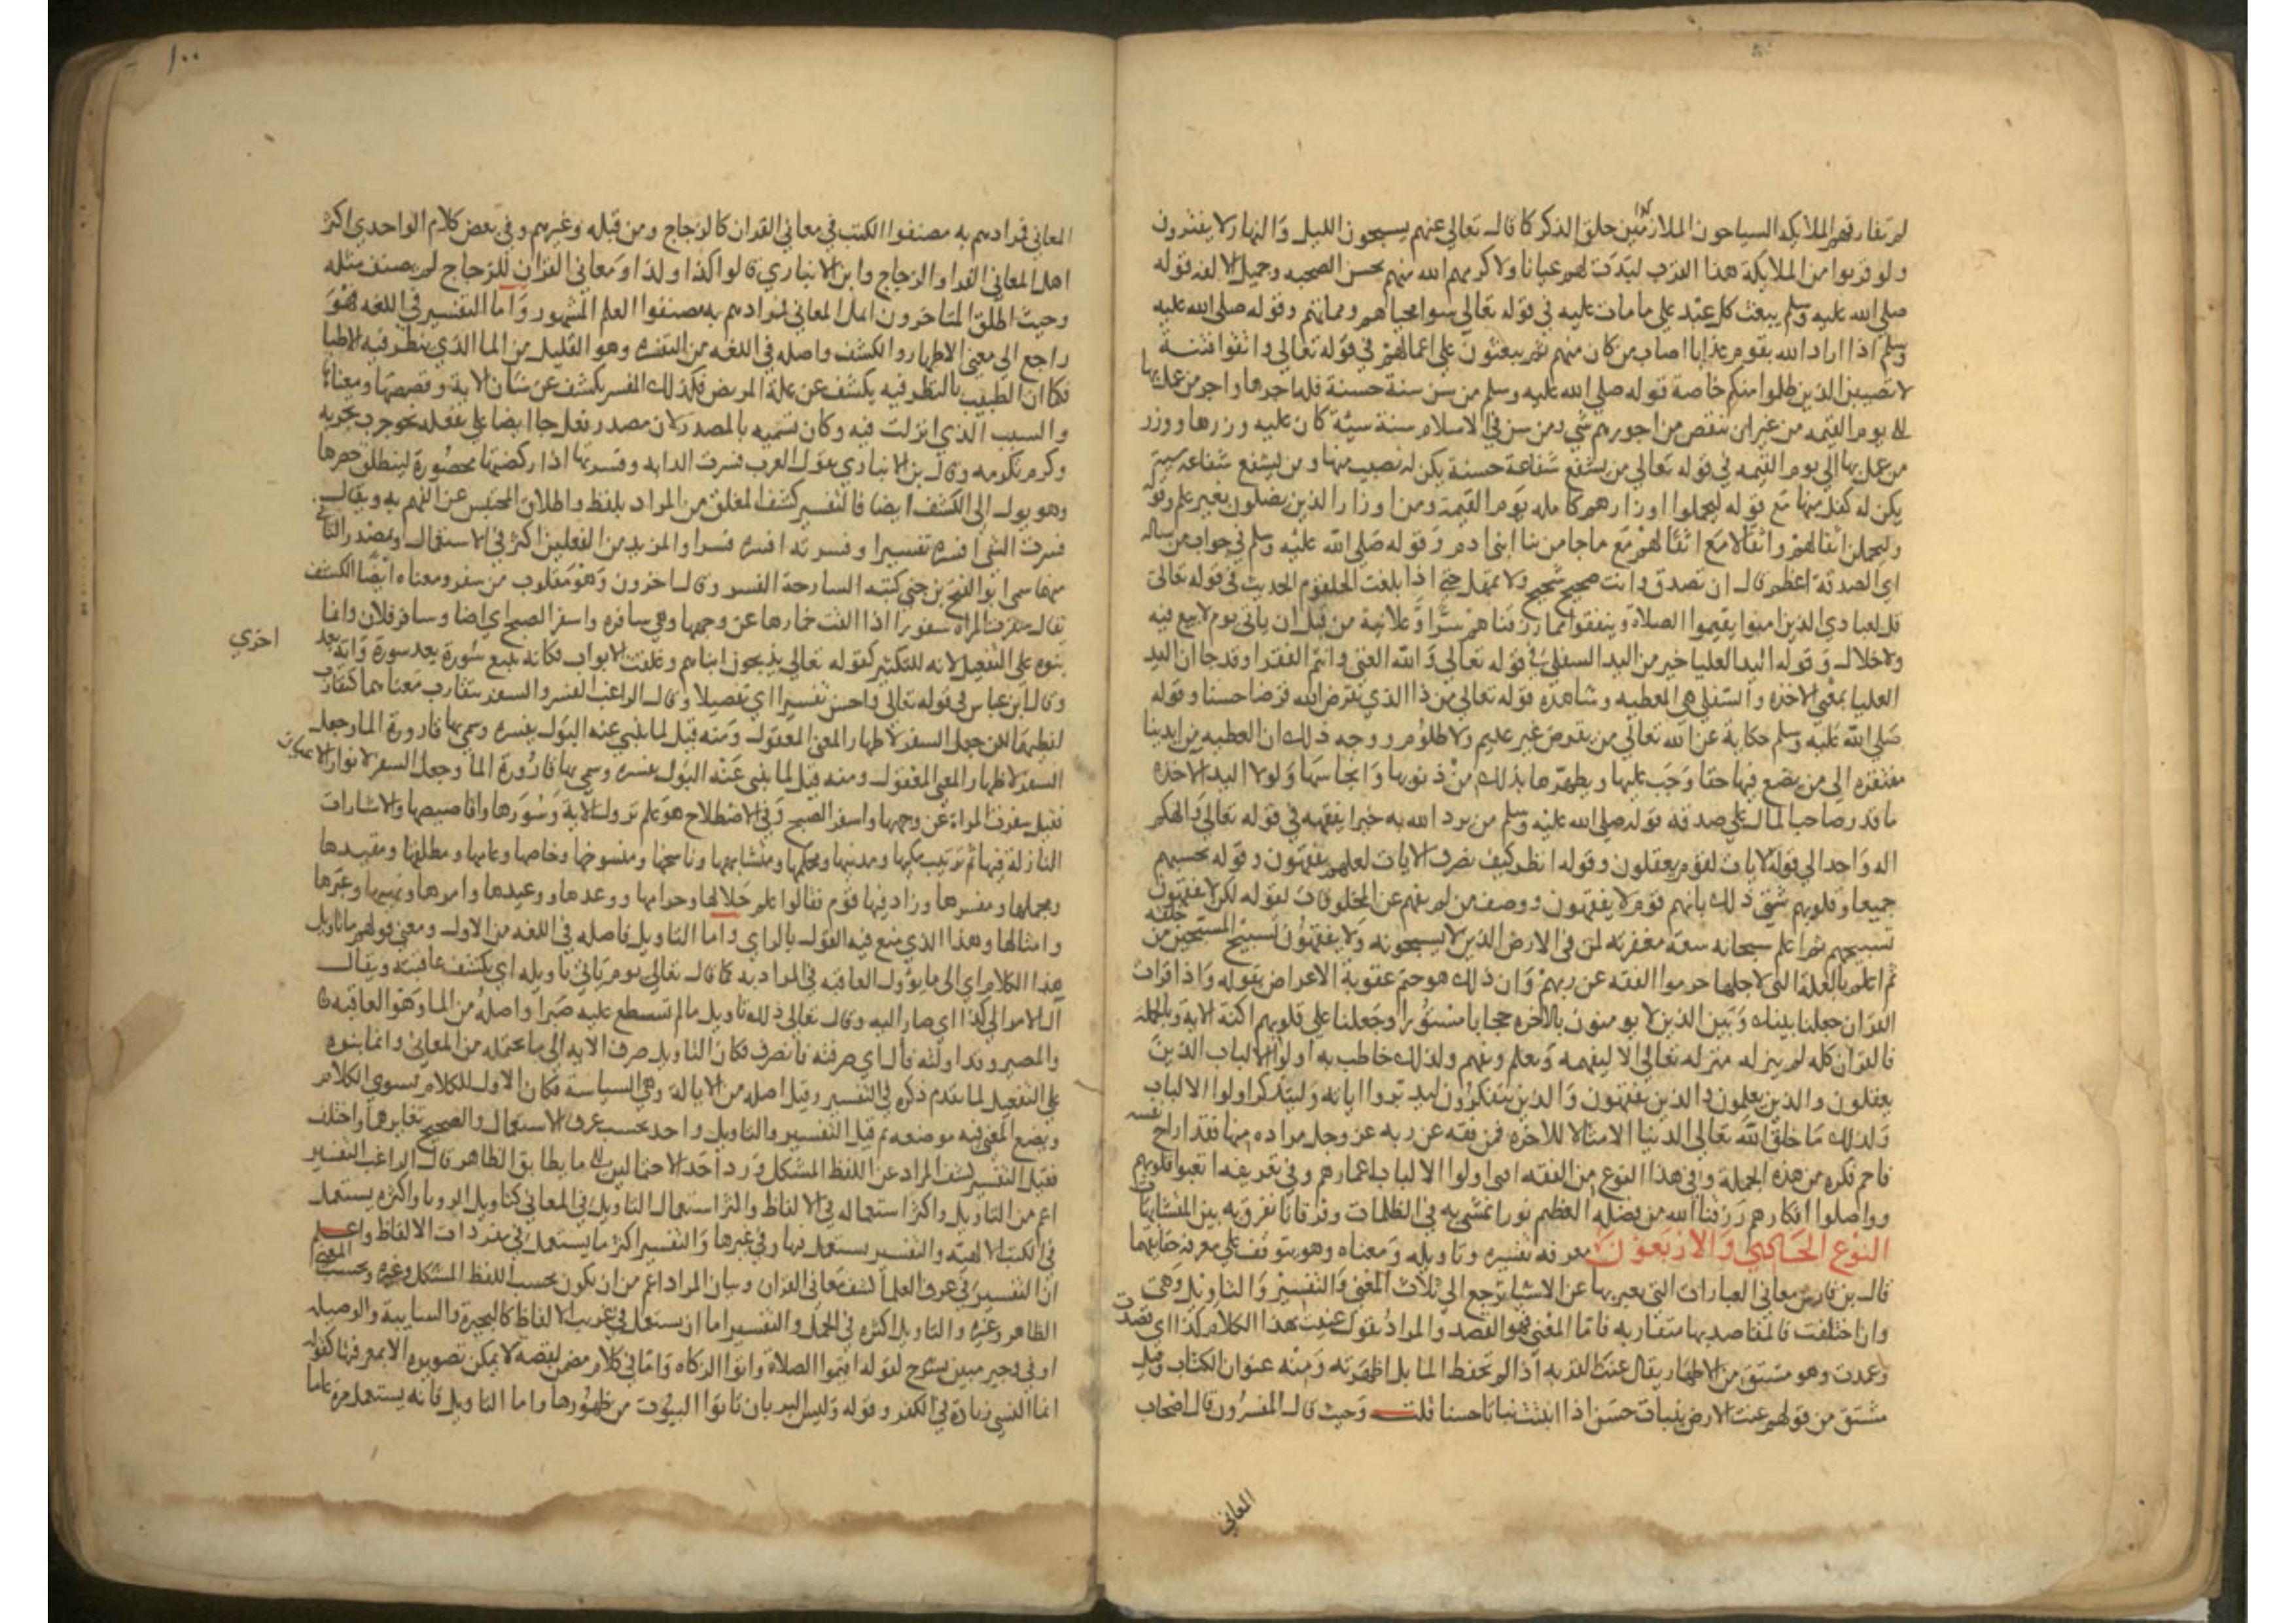 لم تفارقهم الملايكه السياحون الملازمين حلق الذكر كما قال تعالي عنهم يسبحون الليل والنهار لا يفترون
ولو قربوا من الملايكة هذا القرب لبدت لهم عيانا ولاكرمهم الله منهم بحسن الصحبه وجميل الالفه قوله
صلي الله عليه وسلم يبعث كل عبد علي ما مات عليه في قوله تعالي سوا محياهم ومماتهم وقوله صلي الله عليه
وسلم اذا اراد الله بقوم عذابا اصاب من كان منهم ثم يبعثون علي اعمالهم في قوله تعالي واتقوا فتنة
لا تصيبن الذين ظلموا منكم خاصة قوله صلي الله عليه وسلم من سن سنة حسنة فله اجرها واجر من عمل بها
الي يوم القيمه من غير ان ينقص من اجورهم شي ومن سن في الاسلام سنة سيئة كان عليه وزرها ووزر
من عمل بها الي يوم القيمه في قوله تعالي من يشفع شفاعة حسنة يكن له نصيب منها ومن يشفع شفاعة سيئة
يكن له كفل منها مع قوله ليحملوا اوزارهم كامله يوم القيمة ومن اوزار الذين يضلون بغير علم وقوله
وليحملن اثقالهم واثقالا مع اثقالهم مع ما جا من نبا ابني ادم وقوله صلي الله عليه وسلم في جواب من ساله
اي الصدقة اعظم قال ان تصدق وانت صحيح شحيح ولا تمهل حتي اذا بلغت الحلقوم الحديث في قوله تعالي
قل لعبادي الذين امنوا يقيموا الصلاة وينفقوا مما رزقناهم سرا وعلانية من قبل ان ياتي يوم لا بيع فيه
ولا خلال وقوله اليد العليا خير من اليد السفلي في قوله تعالي والله الغني وانتم الفقرا وقد جا ان اليد
العليا بمعني الاخذه والسفلي هي المعطيه وشاهده قوله تعالي من ذا الذي يقرض الله قرضا حسنا وقوله
صلي الله عليه وسلم حكاية عن الله تعالي من يقرض غير عديم ولا ظلوم ووجه ذلك ان العطيه من ايدينا
مفتقره الي من يضع فيها حقا وجب عليها ويطهرها بذلك من ذنوبها وانجاسها ولولا اليد الاخذه
ما قدر صاحب المال علي صدقة قوله صلي الله عليه وسلم من يرد الله به خيرا يفقهه في قوله تعالي والهكم
اله واحد الي قوله لايات لقوم يعقلون وقوله انظر كيف نصرف الايات لعلهم يفقهون وقوله تحسبهم
جميعا وقلوبهم شتي ذلك بانهم قوم لا يفقهون ووصف من لم يفهم عن المخلوقات لقوله لكن لا تفقهون
تسبيحهم ثم اعلم سبحانه سعة مغفرته لمن في الارض الذين لا يسبحونه ولا يفقهون تسبيح المسبحين من خلقه
ثم اعلم بالعلة التي لاجلها حرموا الفقه عن ربهم وان ذلك هو حتم عقوبة الاعراض بقوله واذا قرات
القران جعلنا بينك وبين الذين لا يومنون بالاخره حجابا مستورا وجعلنا علي قلوبهم اكنة الاية وبالجملة
فالقران كله لم ينزله منزله تعالي الا ليفهمه ويعلم ويفهم ولذلك خاطب به اولوا الالباب الذين
يعقلون والذين يعلمون والذين يفقهون والذين يتفكرون ليدبروا اياته وليتذكر اولوا الالباب
ولذلك ما خلق الله تعالي الدنيا الا مثالا للاخره فمن فقه عن ربه عز وجل مراده منها فقد اراح نفسه
فاحم فكره من هذه الجملة وفي هذا النوع من الفقه افني اولوا الالباب اعمارهم وفي تعريفه اتعبوا قلوبهم
وواصلوا افكارهم رزقنا الله من فضله العظيم نورا نمشي به في الظلمات وفرقانا نفرق به بين المتشابهات
النوع الحادي والاربعون معرفة تفسيره وتاويله ومعناه وهو يتوقف علي معرفة حقايقها
قال بن فارس معاني العبارات التي يعبر بها عن الاشيا ترجع الي ثلاث المعني والتفسير والتاويل وهي
وان اختلفت فالمقاصد بها متقاربه فاما المعني فهو القصد والمراد يقول عنيت بهذا الكلام كذا اي قصدت
وعمدت وهو مشتق من الاظهار يقال عنت القربه اذا لم تحفظ الما بل اظهرته ومنه عنوان الكتاب وقيل
مشتق من قولهم عنت الارض بنبات حسن اذا انبتت نباتا حسنا قلت وحيث قال المفسرون قال اصحاب
المعاني
١٠٠
المعاني فمرادهم به مصنفوا الكتب في معاني القران كالزجاج ومن قبله وغيرهم وفي بعض كلام الواحدي اكثر
اهل المعاني الفرا والزجاج وابن الانباري قالوا كذا وكذا ومعاني القران للزجاج لم يصنف مثله
وحيث اطلق المتاخرون اهل المعاني فمرادهم به مصنفوا العلم المشهور واما التفسير في اللغه فهو
راجع الي معني الاظهار والكشف واصله في اللغه من التفسره وهو القليل من الما الذي ينظر فيه الاطبا
فكما ان الطبيب بالنظر فيه يكشف عن علة المريض فكذلك المفسر يكشف عن شان الاية وقصصها ومعناها
والسبب الذي انزلت فيه وكان تسميه بالمصدر لان مصدر فعل جا ايضا علي تفعله نحو جرب تجربه
وكرم تكرمه وقال بن الانباري يقول العرب فسرت الدابه وفسرتها اذا ركضتها محصورة لينطلق حصرها
وهو يول الي الكشف ايضا فالتفسير كشف المغلق من المراد بلفظ واطلاق المحتبس عن الفهم به ويقال
فسرت الشي افسره تفسيرا وفسرته افسره فسرا والمزيد من الفعلين اكثر في الاستعمال وبمصدر الثاني
منهما سمي ابو الفتح بن جني كتبه الشارحة الفسر وقال اخرون وهو مقلوب من سفر ومعناه ايضا الكشف
يقال سفرت المراه سفورا اذا القت خمارها عن وجهها وهي سافره واسفر الصبح اي اضا وسافر فلان وانما
بنوه علي التفعيل لانه للتكثير كقوله تعالي يذبحون ابناهم وغلقت الابواب فكانه يتبع سورة بعد سورة واية بعد
اخري
وقال ابن عباس في قوله تعالي واحسن تفسيرا اي تفصيلا وقال الراغب الفسر والسفر يتقارب معناهما كتقارب
لفظيهما لكن جعل السفر لاظهار المعني المعقول ومنه قيل لما ينبي عنه البول تفسره وسمي بها قارورة الما وجعل
السفر لاظهار المعني المعقول ومنه قيل لما ينبي عنه البول تفسره وسمي بها قارورة الما وجعل السفر لابراز الاعيان
فقيل سفرت المراة عن وجهها واسفر الصبح وفي الاصطلاح هو علم نزول الاية وسورها واقاصيصها والاشارات
النازلة فيها ثم ترتيب مكيها ومدنيها ومحكمها ومتشابهها وناسخها ومنسوخها وخاصها وعامها ومطلقها ومقيدها
ومجملها ومفسرها وزاد فيها قوم فقالوا علم حلالها وحرامها ووعدها ووعيدها وامرها ونهيها وعبرها
وامثالها وهذا الذي منع فيه القول بالراي واما التاويل فاصله في اللغه من الاول ومعني قولهم ما تاويل
هذا الكلام اي الي ما يؤول العاقبه في المراد به كما قال تعالي يوم ياتي تاويله اي يكشف عاقبته ويقال
آل الامر الي كذا اي صار اليه وقال تعالي ذلك تاويل ما لم تسطع عليه صبرا واصله من المال وهو العاقبه
والمصير وقد اولته فآل اي صرفته فانصرف فكان التاويل صرف الايه الي ما يحتمله من المعاني وانما بنوه
علي التفعيل لما تقدم ذكره في التفسير وقيل اصله من الايالة وهي السياسة فكان الاول للكلام تسوي الكلام
ويضع المعني فيه موضعه ثم قيل التفسير والتاويل واحد بحسب عرف الاستعمال والصحيح تغايرهما واختلف
فقيل التفسير كشف المراد عن اللفظ المشكل ورد احد الاحتمالين الي ما يطابق الظاهر قال الراغب التفسير
اعم من التاويل واكثر استعماله في الالفاظ واكثر استعمال التاويل في المعاني كتاويل الرويا واكثره يستعمل
في الكتب الالهيه والتفسير يستعمل فيها وفي غيرها والتفسير اكثر ما يستعمل في مفردات الالفاظ واعلم
ان التفسير في عرف العلما كشف معاني القران وبيان المراد اعم من ان يكون بحسب اللفظ المشكل وغيره وبحسب المعني
الظاهر وغيره والتاويل اكثره في الجمل والتفسير اما ان يستعمل في غريب الالفاظ كالبحيرة والسايبة والوصيله
او في وجيز مبين بشرح لقوله اقيموا الصلاة واتوا الزكاه واما في كلام مضمن لقصة لا يمكن تصويره الا بمعرفتها كقوله
انما النسي زيادة في الكفر وقوله وليس البر بان تاتوا البيوت من ظهورها واما التاويل فانه يستعمل مرة عاما